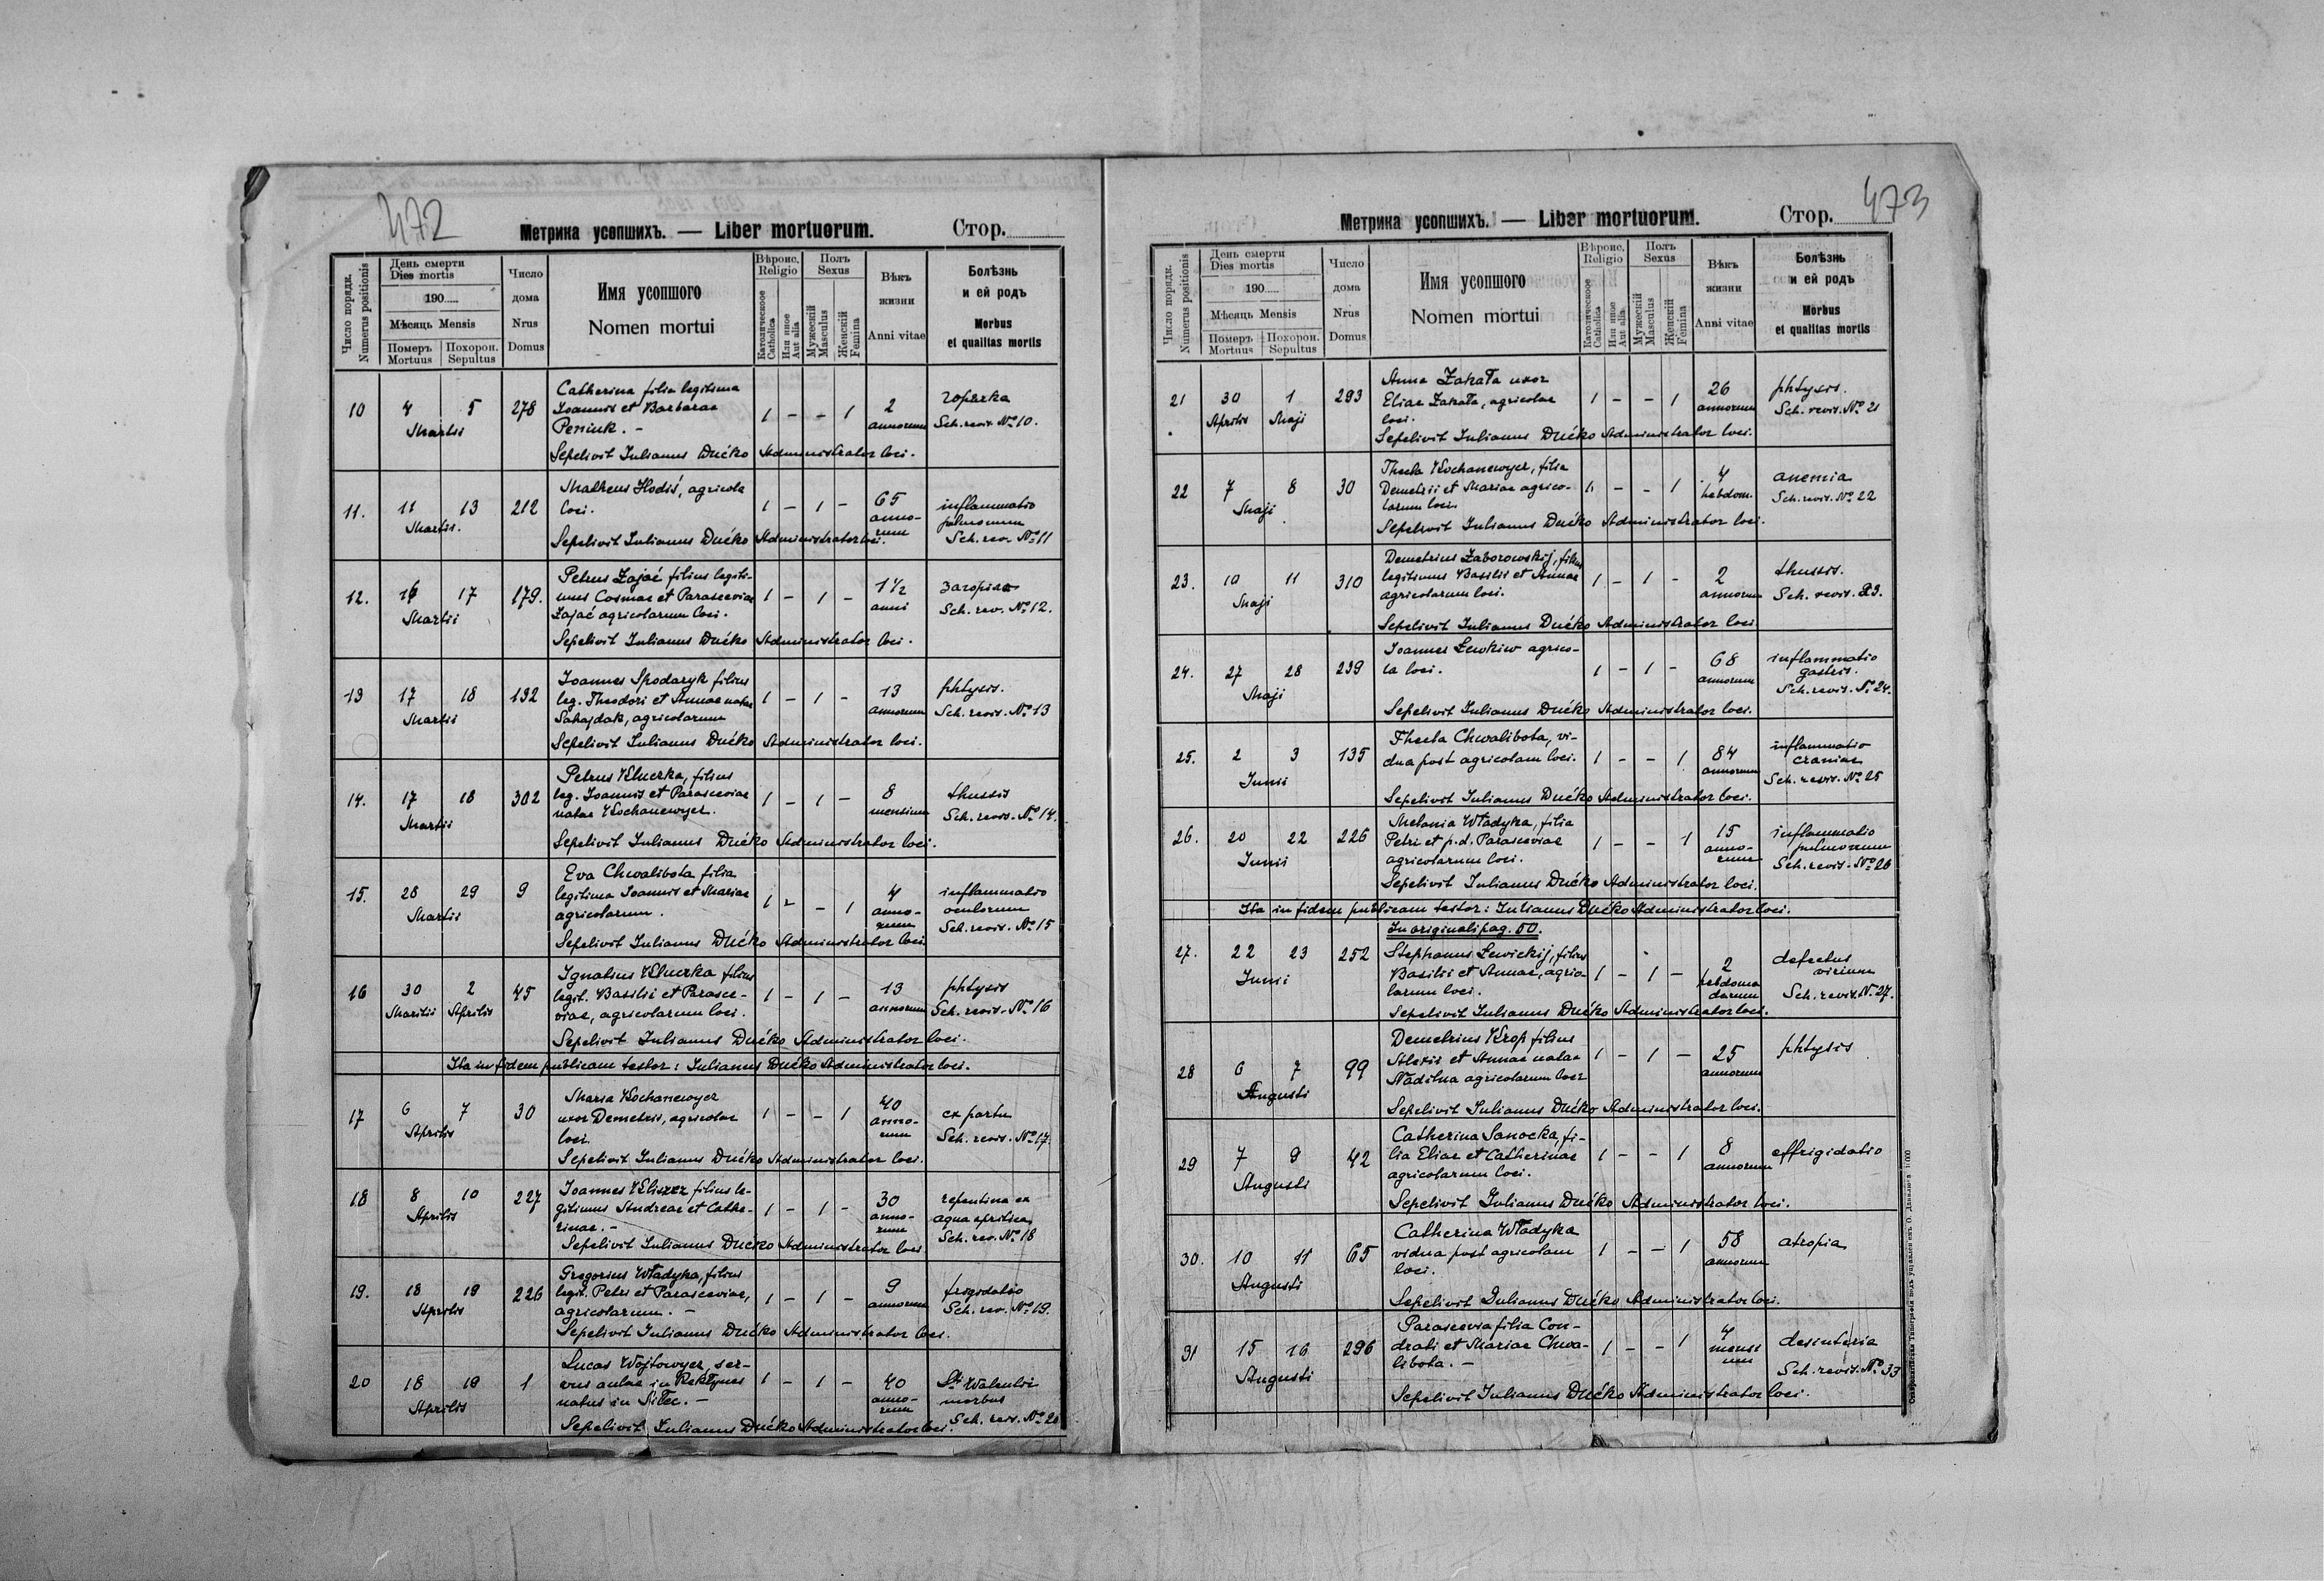 472
Метрика усопшихъ. — Liber mortuorum. Стор.
Число порядк. Numerus positionis
День смерти Dies mortis
190
Мѣсяць Mensis
Померъ Mortuus
Похорон. Sepultus
Число дома Nrus Domus
Имя усопшого Nomen mortui
Вѣроис. Religio
Католическоое Catholica
Или иное Aut alia
Полъ Sexus
Мужескій Masculus
Женскій Femina
Вѣкъ жизни Anni vitae
Болѣзнь и ей родъ
Morbus et qualitas mortis
10 4 5 Martii 278 Catherina filia legitima
Joannis et Barbarae
Peniuk. — 1 - - 1 2 annorum
Sch. revis. No 10.
Sepelivit Julianus Dućko Administrator loci.
11. 11 13 Martii. 212 Matheus Hodiś, agricola
loci. 1 - 1 - 65 annorum inflammatio
pulmonum
Sch. rev. No 11
Sepelivit Julianus Dućko Administrator loci.
12. 16 17 Martii 179. Petrus Zajać filius legiti-
mus Cosmae et Parasceviae
Zajać agricolarum loci. 1 - 1 - 1 1/2 anni
Sch. rev. No 12.
Sepelivit Julianus Dućko Administrator loci.
13 17 18 Martii 132 Joannes Spodaryk filius
leg. Theodori et Annae natae
Sahajdak, agricolarum 1 - 1 - 13 annorum phtysis.
Sch. revis. No 13
Sepelivit Julianus Dućko Administrator loci.
14. 17 18 Martii 302 Petrus Kluczka, filius
leg. Joannis et Parasceviae
natae Kochanewycz. 1 - 1 - 8 mensium thussis
Sch. revis. No 14.
Sepelivit Julianus Dućko Administrator loci.
15. 28 29 Martii 9 Eva Chwalibota filia
legitima Joannis et Mariae
agricolarum. 1 - - 1 4 annorum inflammatio
oculorum
Sch. revis. No 15
Sepelivit Julianus Dućko Administrator loci.
16 30 Martii 2 Aprilis 45 Ignatius Kluczka filius
legit. Basilii et Parasce-
viae, agricolarum loci. 1 - 1 - 13 annorum phtysis
Sch. revis. No 16
Sepelivit Julianus Dućko Administrator loci.
Ita in fidem publicam testor: Julianus Dućko Administrator loci.
17 6 7 Aprilis 30 Maria Kochanewycz
uxor Demetrii, agricolae
loci. 1 - - 1 40 annorum ex partu
Sch. revis. No 17.
Sepelivit Julianus Dućko Administrator loci.
18 8 10 Aprilis 227 Joannes Kliszcz filius le-
gitimus Andreae et Cathe-
rinae. — 1 - 1 - 30 annorum repentina ex
aqua
Sch. rev. No 18
Sepelivit Julianus Dućko Administrator loci
19. 18 19 Aprilis 226 Gregorius Władyka, filius
legit. Petri et Parasceviae,
agricolarum. — 1 - 1 - 9 annorum frigidatio
Sch. rev. No 19.
Sepelivit Julianus Dućko Administrator loci.
20 18 19 Aprilis 1 Lucas Wojtowycz, ser-
vus aulae in
natus in Siłec. — 1 - 1 - 40 annorum St. Walentii
morbus
Sch. revis. No 20
Sepelivit Julianus Dućko Administrator loci.
473
Метрика усопшихъ. — Liber mortuorum. Стор.
Число порядк. Numerus positionis
День смерти Dies mortis
190
Мѣсяць Mensis
Померъ Mortuus
Похорон. Sepultus
Число дома Nrus Domus
Имя усопшого Nomen mortui
Вѣроис. Religio
Католическоое Catholica
Или иное Aut alia
Полъ Sexus
Мужескій Masculus
Женскій Femina
Вѣкъ жизни Anni vitae
Болѣзнь и ей родъ
Morbus et qualitas mortis
21 30 Aprilis 1 Maji 293 Anna Zakała uxor
Eliae Zakała, agricolae
loci. 1 - - 1 26 annorum phtysis.
Sch. revis. No 21
Sepelivit Julianus Dućko Administrator loci.
22 7 8 Maji 30 Thecla Kochanewycz, filia
Demetrii et Mariae agrico-
larum loci. 1 - - 1 4 hebdom. anemia
Sch. revis. No 22
Sepelivit Julianus Dućko Administrator loci.
23. 10 11 Maji 310 Demetrius Zaborowskij, filius
legitimus Basilii et Annae
agricolarum loci. 1 - 1 - 2 annorum thussis.
Sch. revis. 23.
Sepelivit Julianus Dućko Administrator loci
24. 27 28 Maji 239 Joannes Lewkiw agrico-
la loci. 1 - 1 - 68 annorum inflammatio
gastris.
Sch. revis. No 24.
Sepelivit Julianus Dućko Administrator loci.
25. 2 3 Junii 135 Thecla Chwalibota, vi-
dua post agricolam loci. 1 - - 1 84 annorum inflammatio
craniae
Sch. revis. No 25
Sepelivit Julianus Dućko Administrator loci.
26. 20 22 Junii 226 Melania Władyka, filia
Petri et p.d. Parasceviae
agricolarum loci. 1 - - 1 15 annorum inflammatio
pulmonum
Sch. revis. No 26
Sepelivit Julianus Dućko Administrator loci.
Ita in fidem publicam testor: Julianus Dućko Administrator loci.
In originali pag. 50.
27. 22 23 Junii 252 Stephanus Lewickij, filius
Basilii et Annae, agrico-
larum loci. 1 - 1 - 2 hebdomadarum defectus
virium
Sch. revis. No 27.
Sepelivit Julianus Dućko Administrator loci.
28 6 7 Augusti 99 Demetrius Krop filius
Alexii et Annae natae
Nadilna agricolarum loci 1 - 1 - 25 annorum phtysis
Sepelivit Julianus Dućko Administrator loci.
29 7 9 Augusti 42 Catherina Sanocka, fi-
lia Eliae et Catherinae
agricolarum loci. 1 - - 1 8 annorum effrigidatio
Sepelivit Julianus Dućko Administrator loci.
30. 10 11 Augusti 65 Catherina Władyka
vidua post agricolam
loci. 1 - - 1 58 annorum atropia
Sepelivit Julianus Dućko Administrator loci.
31 15 16 Augusti 296 Parascevia filia Con-
drati et Mariae Chwa-
libota. — 1 - - 1 4 mensium desinteria
Sch. revis. No 33
Sepelivit Julianus Dućko Administrator loci.